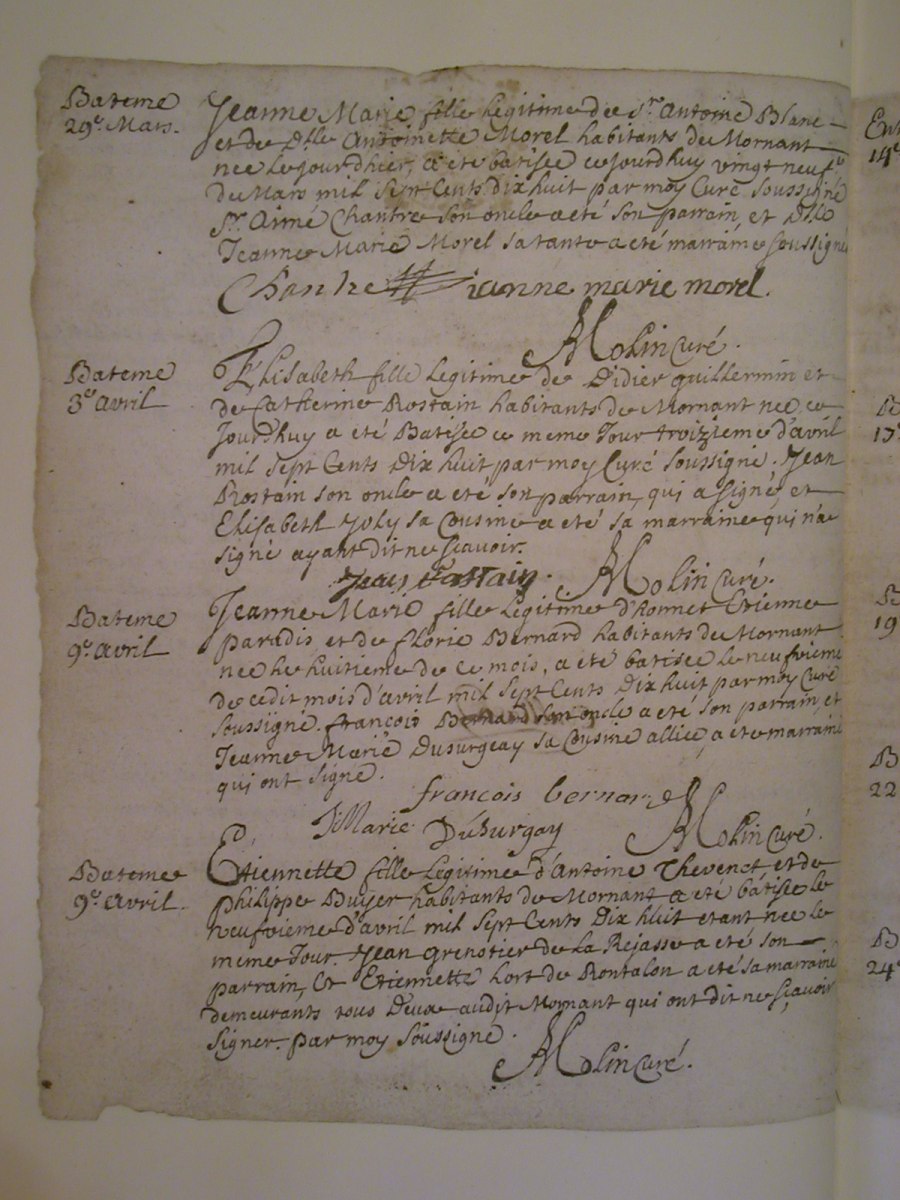 Bateme
29e Mars.
Jeanne Marie fille legitime de sr. Antoine Blanc
et de Dlle Antoinette Morel habitants de Mornant
nee le jourdhier, a eté batisée cejourdhuy vingt neufe
de Mars mil sept Cents dix huit par moy Curé soussigné
sr. Aimé Chantre son oncle a eté son parrain et Dlle
Jeanne Marie Morel sa tante a eté marraine soussigné
Chantre ianne marie morel.
Molin Curé.
Bateme
3e avril
Elisabeth fille legitime de Didier guillermin et
de Catherine Rostain habitants de Mornant nee ce
jourdhuy a eté Batisée ce meme Jour troizieme d'avril
mil sept Cents Dix huit par moy Curé soussigné. Jean
Rostain son oncle a eté son parrain, qui a signé, et
Elisabeth Joly sa Cousine a eté sa marraine qui n'a
signé ayant dit ne scavoir.
Jean Molin Curé.
Bateme
9e avril
Jeanne Marie fille legitime d'honnet Etienne
paradis et de florie Bernard habitants de Mornant
nee le huitieme de ce mois, a eté batisée le neufvieme
de cedit mois d'avril mil sept Cents Dix huit par moy Curé
soussigné. françois Bernard son oncle a eté son parrain, et
Jeanne Marie Dusurgeay sa Cousine alliée, a eté marraine
qui ont signé.
francois bernard
JMarie DuSurgay Molin Curé.
Bateme
9e avril
Etiennette fille legitime d'Antoine Thevenet et de
philippe Buyer habitants de Mornant a eté bâtisée le
neufvieme d'avril mil sept Cents Dix huit etant nee le
meme Jour. Jean grenotier de la Rejasse a eté son
parrain, Et Etiennette hort de Rontalon a eté sa marraine
demeurants tous Deux audit Mornant qui ont dit ne sçavoir
signer. par moy soussigné.
Molin Curé.
14e
19
22